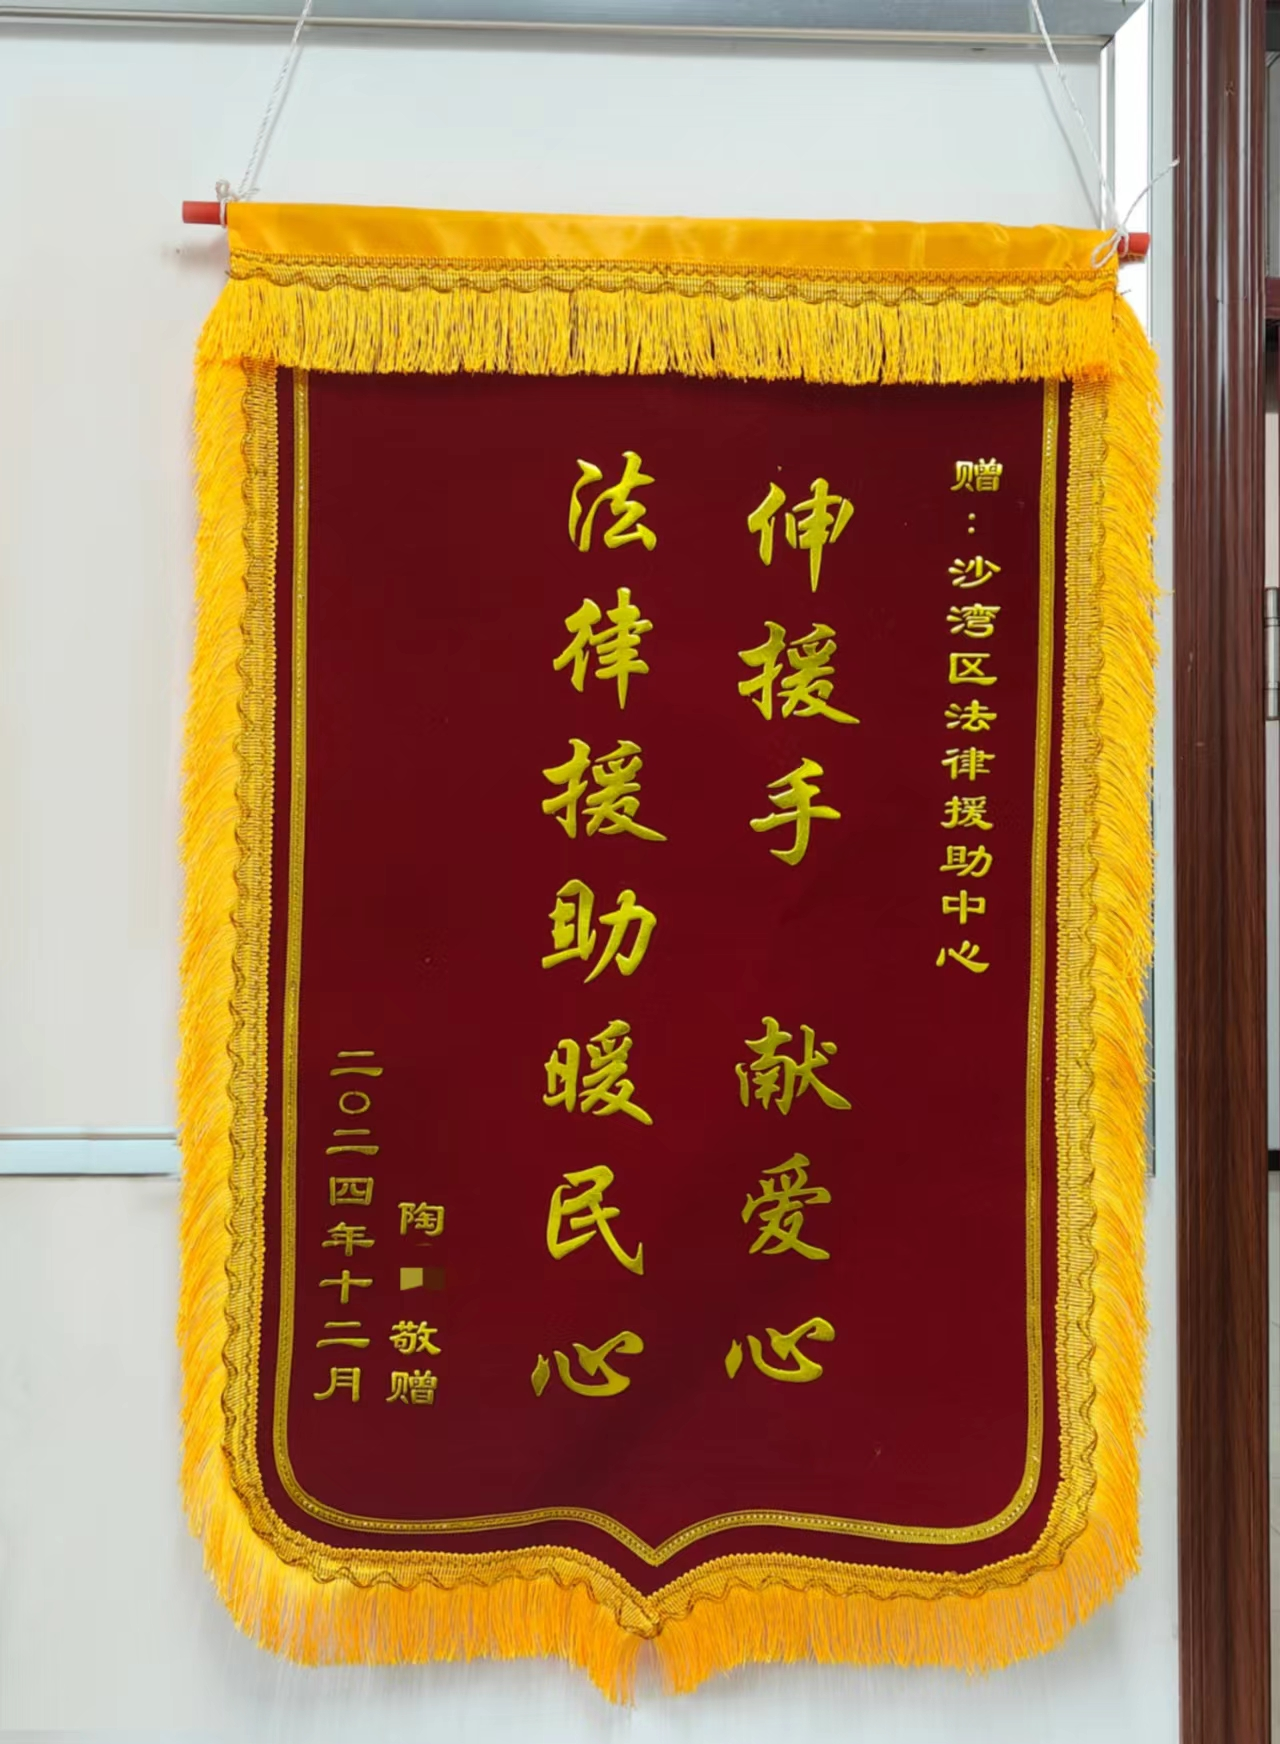 赠：沙湾区法律援助中心
伸援手 献爱心
法律援助暖民心
陶 敬赠
二〇二四年十二月